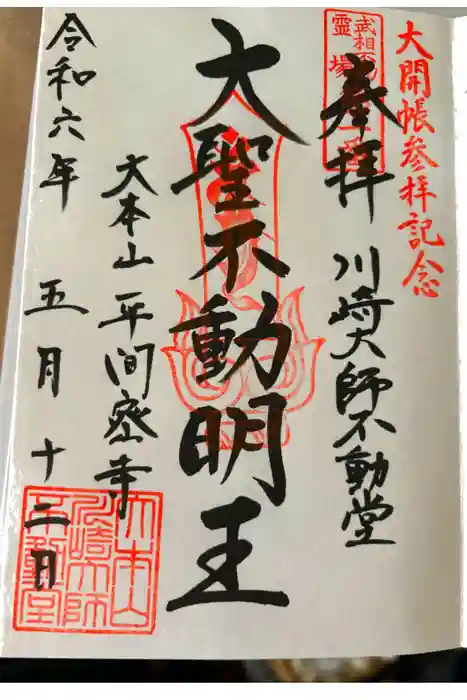 大開帳参拝記念
武相不動
霊場
奉拝
川崎大師不動堂
大聖不動明王
大本山 平間密寺
令和六年 五月十二日
大本山
川崎大師
不動堂